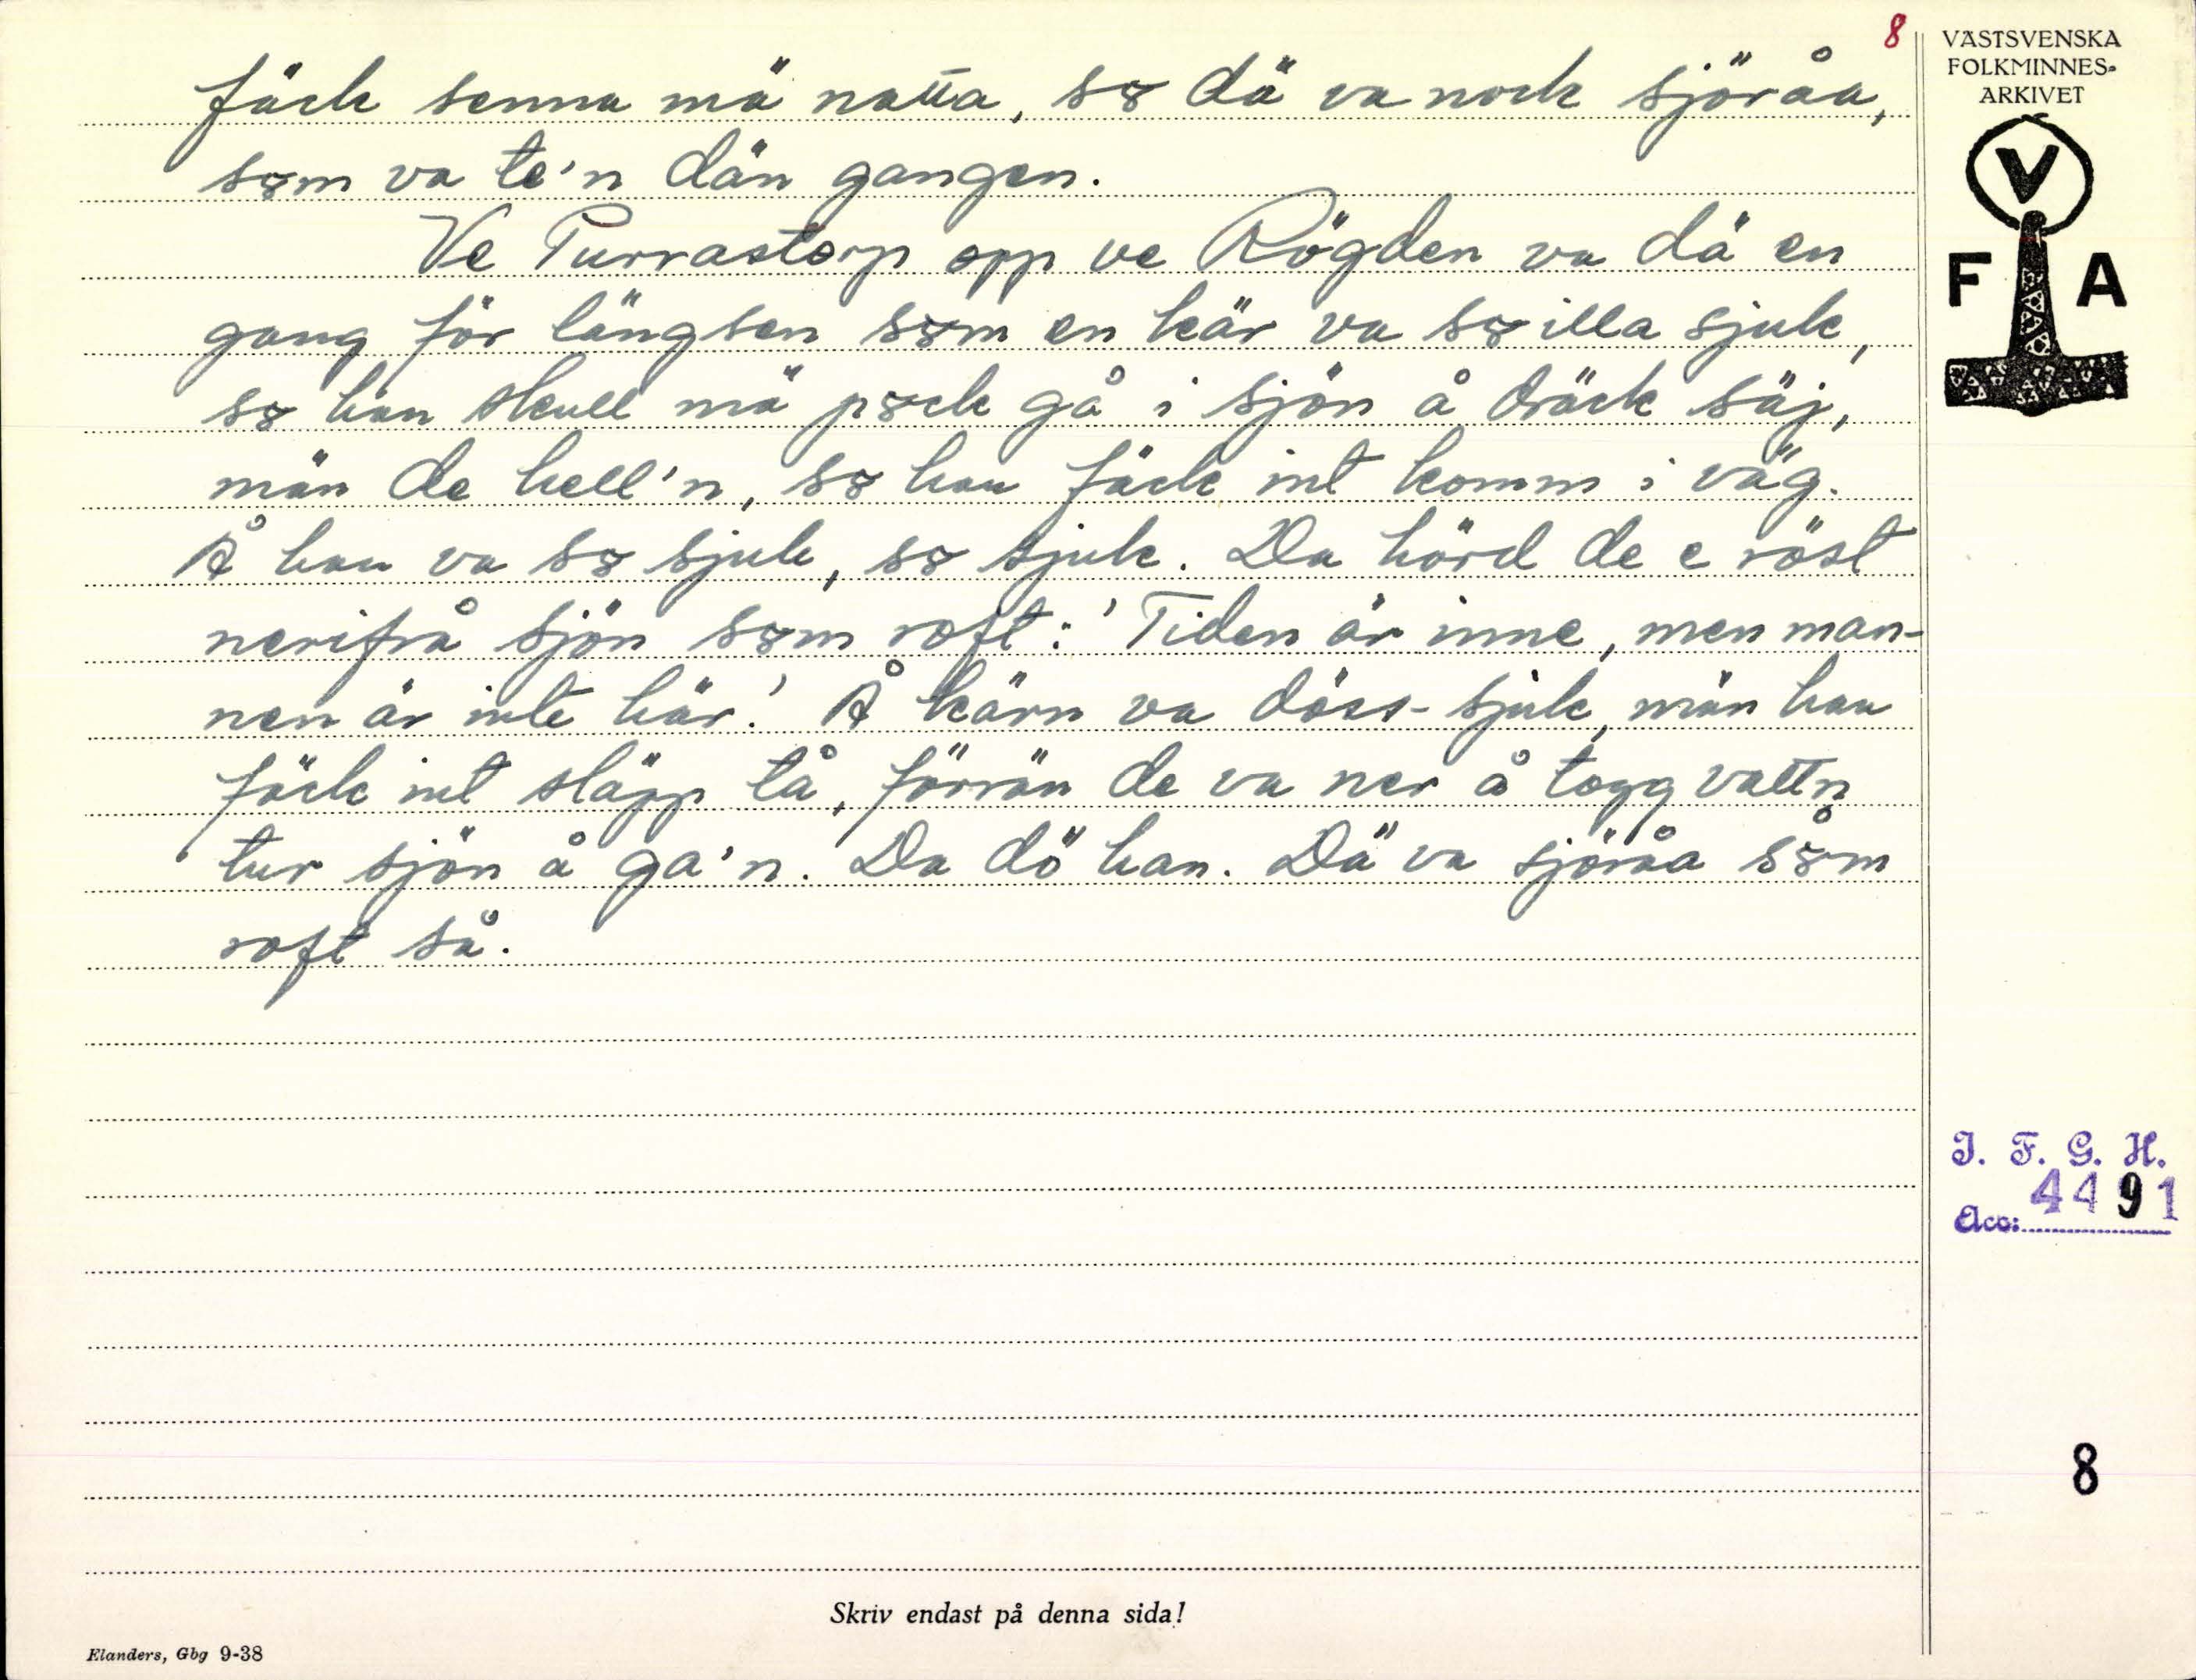 8
VÄSTSVENSKA
FOLKMINNES-
ARKIVET
V
F A
fäck senna mä natta, sö dä va nock sjöråa,
söm va te'n dän gangen.
Ve Purrastorp opp ve Rögden va dä en
gang för längsen söm en kär va sö illa sjuk,
sö han skull mä pöck gå i sjön å dräck säj,
män de hell'n, sö han fäck int komm i väg.
Å han va sö sjuk, sö sjuk. Da hörd de e röst
nerifrå sjön söm roft: 'Tiden är inne, men man-
nen är inte här.' Å kärn va döss-sjuk, män han
fäck int släpp tå, förrän de va ner å togg vattn
tur sjön å ga'n. Da dö han. Dä va sjöråa söm
roft så.
I. F. G. H.
Acc: 4491
8
Skriv endast på denna sida!
Elanders, Gbg 9-38